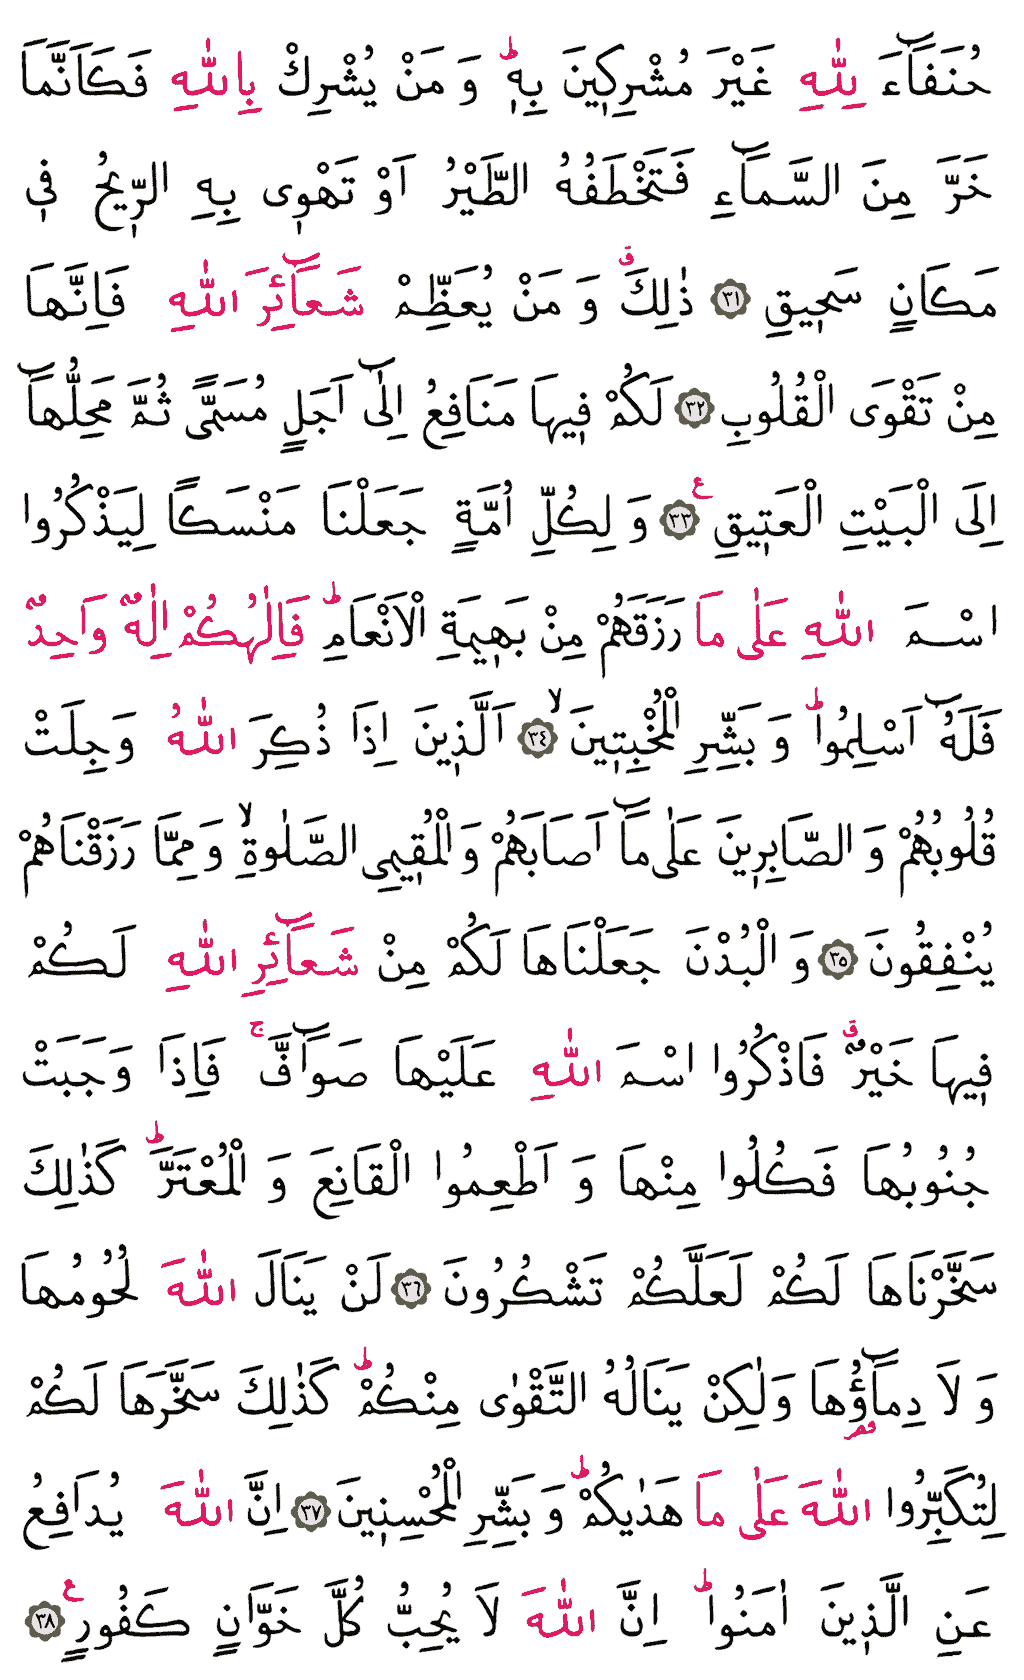 حُنَفَٓاءَ لِلّٰهِ غَيْرَ مُشْرِكٖينَ بِهٖؕ وَ مَنْ يُشْرِكْ بِاللّٰهِ فَكَاَنَّمَا
خَرَّ مِنَ السَّمَٓاءِ فَتَخْطَفُهُ الطَّيْرُ اَوْ تَهْوٖى بِهِ الرّٖيحُ فٖى
مَكَانٍ سَحٖيقٍ ﴿٣١﴾ ذٰلِكَۗ وَ مَنْ يُعَظِّمْ شَعَٓائِرَ اللّٰهِ فَاِنَّهَا
مِنْ تَقْوَى الْقُلُوبِ ﴿٣٢﴾ لَكُمْ فٖيهَا مَنَافِعُ اِلٰٓى اَجَلٍ مُسَمًّى ثُمَّ مَحِلُّهَٓا
اِلَى الْبَيْتِ الْعَتٖيقِ ࣖ ﴿٣٣﴾ وَ لِكُلِّ اُمَّةٍ جَعَلْنَا مَنْسَكًا لِيَذْكُرُوا
اسْمَ اللّٰهِ عَلٰى مَا رَزَقَهُمْ مِنْ بَهٖيمَةِ الْاَنْعَامِؕ فَاِلٰهُكُمْ اِلٰهٌ وَاحِدٌ
فَلَهُٓ اَسْلِمُواؕ وَ بَشِّرِ الْمُخْبِتٖينَۙ ﴿٣٤﴾ اَلَّذٖينَ اِذَا ذُكِرَ اللّٰهُ وَجِلَتْ
قُلُوبُهُمْ وَ الصَّابِرٖينَ عَلٰى مَٓا اَصَابَهُمْ وَ الْمُقٖيمِى الصَّلٰوةِۙ وَ مِمَّا رَزَقْنَاهُمْ
يُنْفِقُونَ ﴿٣٥﴾ وَ الْبُدْنَ جَعَلْنَاهَا لَكُمْ مِنْ شَعَٓائِرِ اللّٰهِ لَكُمْ
فٖيهَا خَيْرٌۗ فَاذْكُرُوا اسْمَ اللّٰهِ عَلَيْهَا صَوَٓافَّۚ فَاِذَا وَجَبَتْ
جُنُوبُهَا فَكُلُوا مِنْهَا وَ اَطْعِمُوا الْقَانِعَ وَ الْمُعْتَرَّؕ كَذٰلِكَ
سَخَّرْنَاهَا لَكُمْ لَعَلَّكُمْ تَشْكُرُونَ ﴿٣٦﴾ لَنْ يَنَالَ اللّٰهَ لُحُومُهَا
وَ لَا دِمَٓاؤُ۬هَا وَلٰكِنْ يَنَالُهُ التَّقْوٰى مِنْكُمْؕ كَذٰلِكَ سَخَّرَهَا لَكُمْ
لِتُكَبِّرُوا اللّٰهَ عَلٰى مَا هَدٰيكُمْؕ وَ بَشِّرِ الْمُحْسِنٖينَ ﴿٣٧﴾ اِنَّ اللّٰهَ يُدَافِعُ
عَنِ الَّذٖينَ اٰمَنُواؕ اِنَّ اللّٰهَ لَا يُحِبُّ كُلَّ خَوَّانٍ كَفُورٍ ࣖ ﴿٣٨﴾